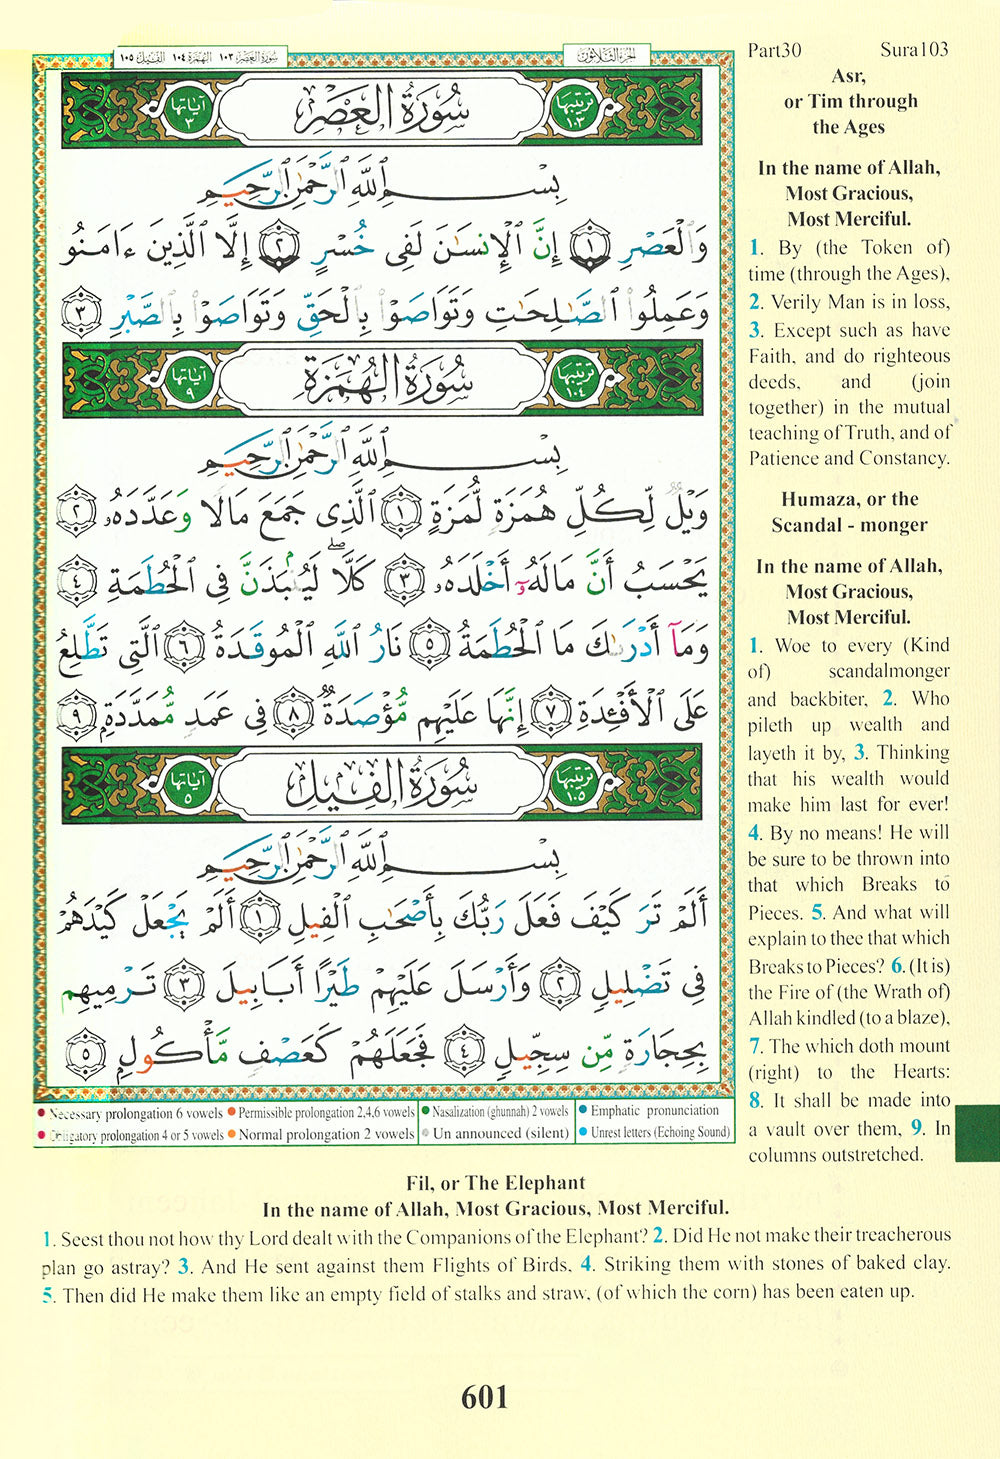 سورة العصر ١٠٣ الهمزة ١٠٤ الفيل ١٠٥
الجزء الثلاثون
ترتيبها ١٠٣ سُورَةُ العَصْرِ آياتها ٣
بِسْمِ ٱللَّهِ ٱلرَّحْمَٰنِ ٱلرَّحِيمِ
وَٱلْعَصْرِ ١ إِنَّ ٱلْإِنسَٰنَ لَفِى خُسْرٍ ٢ إِلَّا ٱلَّذِينَ ءَامَنُوا۟
وَعَمِلُوا۟ ٱلصَّٰلِحَٰتِ وَتَوَاصَوْا۟ بِٱلْحَقِّ وَتَوَاصَوْا۟ بِٱلصَّبْرِ ٣
ترتيبها ١٠٤ سُورَةُ الهُمَزَةِ آياتها ٩
بِسْمِ ٱللَّهِ ٱلرَّحْمَٰنِ ٱلرَّحِيمِ
وَيْلٌ لِّكُلِّ هُمَزَةٍ لُّمَزَةٍ ١ ٱلَّذِى جَمَعَ مَالًا وَعَدَّدَهُۥ ٢
يَحْسَبُ أَنَّ مَالَهُۥٓ أَخْلَدَهُۥ ٣ كَلَّا ۖ لَيُنۢبَذَنَّ فِى ٱلْحُطَمَةِ ٤
وَمَآ أَدْرَىٰكَ مَا ٱلْحُطَمَةُ ٥ نَارُ ٱللَّهِ ٱلْمُوقَدَةُ ٦ ٱلَّتِى تَطَّلِعُ
عَلَى ٱلْأَفْـِٔدَةِ ٧ إِنَّهَا عَلَيْهِم مُّؤْصَدَةٌ ٨ فِى عَمَدٍ مُّمَدَّدَةٍۭ ٩
ترتيبها ١٠٥ سُورَةُ الفِيلِ آياتها ٥
بِسْمِ ٱللَّهِ ٱلرَّحْمَٰنِ ٱلرَّحِيمِ
أَلَمْ تَرَ كَيْفَ فَعَلَ رَبُّكَ بِأَصْحَٰبِ ٱلْفِيلِ ١ أَلَمْ يَجْعَلْ كَيْدَهُمْ
فِى تَضْلِيلٍ ٢ وَأَرْسَلَ عَلَيْهِمْ طَيْرًا أَبَابِيلَ ٣ تَرْمِيهِم
بِحِجَارَةٍ مِّن سِجِّيلٍ ٤ فَجَعَلَهُمْ كَعَصْفٍ مَّأْكُولٍۭ ٥
Necessary prolongation 6 vowels Permissible prolongation 2,4,6 vowels Nasalization (ghunnah) 2 vowels Emphatic pronunciation
Obligatory prolongation 4 or 5 vowels Normal prolongation 2 vowels Un announced (silent) Unrest letters (Echoing Sound)
Part30 Sura103
Asr,
or Tim through
the Ages
In the name of Allah,
Most Gracious,
Most Merciful.
1. By (the Token of)
time (through the Ages),
2. Verily Man is in loss,
3. Except such as have
Faith, and do righteous
deeds, and (join
together) in the mutual
teaching of Truth, and of
Patience and Constancy.
Humaza, or the
Scandal - monger
In the name of Allah,
Most Gracious,
Most Merciful.
1. Woe to every (Kind
of) scandalmonger
and backbiter, 2. Who
pileth up wealth and
layeth it by, 3. Thinking
that his wealth would
make him last for ever!
4. By no means! He will
be sure to be thrown into
that which Breaks to
Pieces. 5. And what will
explain to thee that which
Breaks to Pieces? 6. (It is)
the Fire of (the Wrath of)
Allah kindled (to a blaze),
7. The which doth mount
(right) to the Hearts:
8. It shall be made into
a vault over them, 9. In
columns outstretched.
Fil, or The Elephant
In the name of Allah, Most Gracious, Most Merciful.
1. Seest thou not how thy Lord dealt with the Companions of the Elephant? 2. Did He not make their treacherous
plan go astray? 3. And He sent against them Flights of Birds, 4. Striking them with stones of baked clay.
5. Then did He make them like an empty field of stalks and straw, (of which the corn) has been eaten up.
601